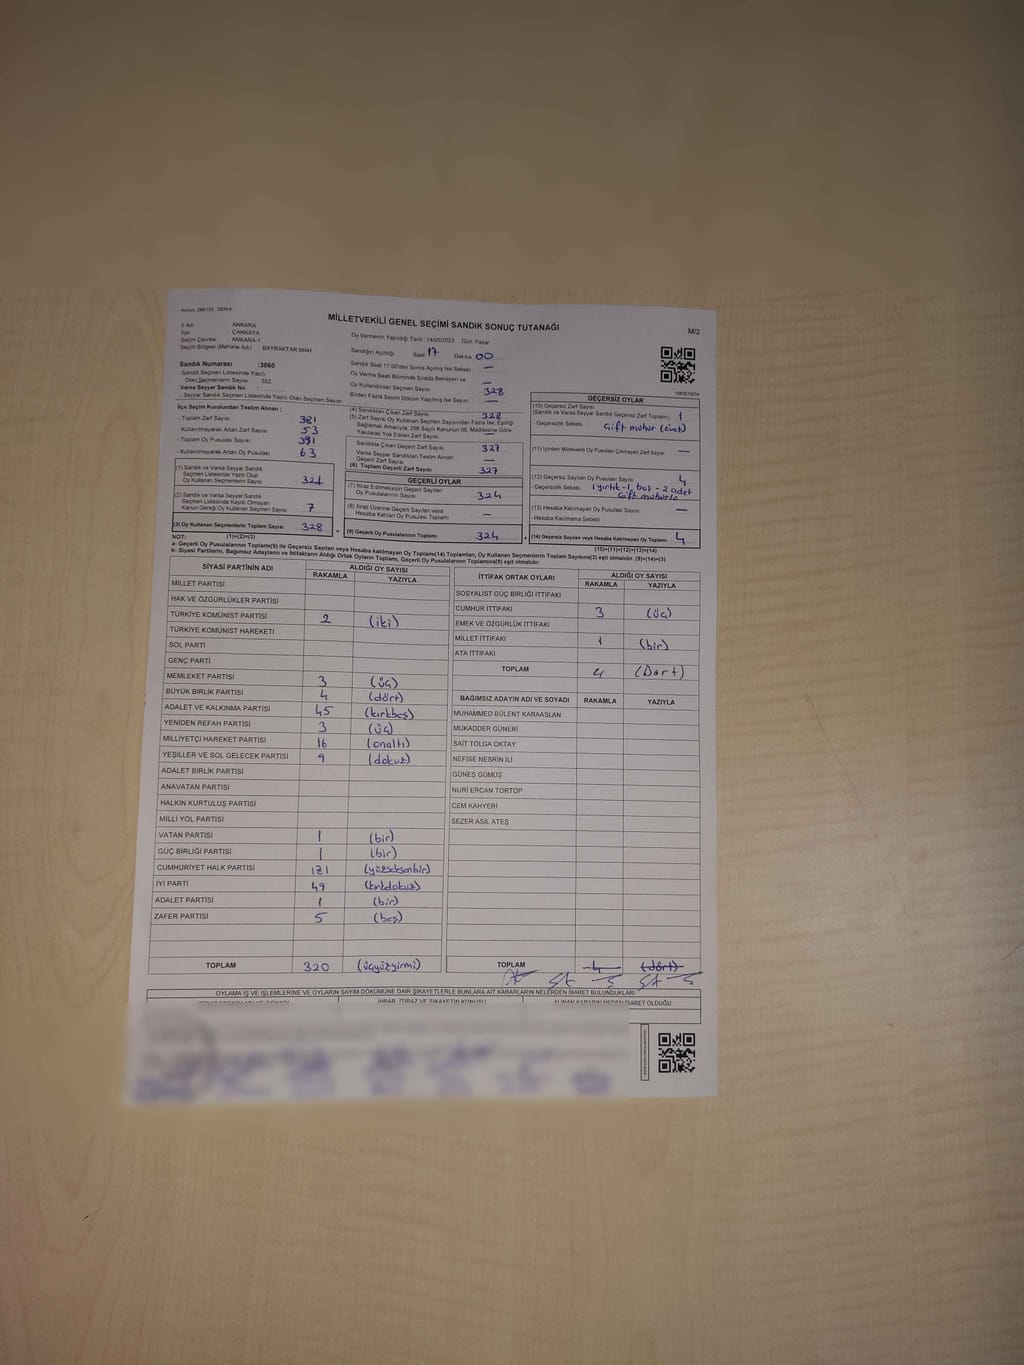 Kanun: 298/105 , 2839/4
MİLLETVEKİLİ GENEL SEÇİMİ SANDIK SONUÇ TUTANAĞI
M/2
İl Adı ANKARA
İlçe ÇANKAYA
Seçim Çevresi ANKARA-1
Seçim Bölgesi (Mahalle Adı) BAYRAKTAR MAH
Sandık Numarası :3060
Sandık Seçmen Listesinde Yazılı
Olan Seçmenlerin Sayısı 352
Varsa Seyyar Sandık No :
- Seyyar Sandık Seçmen Listesinde Yazılı Olan Seçmen Sayısı:
Oy Vermenin Yapıldığı Tarih : 14/05/2023 Gün: Pazar
Sandığın Açıldığı Saat 17 Dakika 00
Sandık Saat 17.00'den Sonra Açılmış İse Sebebi : —
Oy Verme Saati Bitiminde Sırada Bekleyen ve —
Oy Kullandırılan Seçmen Sayısı 328
Birden Fazla Sayım Döküm Yapılmış İse Sayısı —
İlçe Seçim Kurulundan Teslim Alınan :
- Toplam Zarf Sayısı 381
- Kullanılmayarak Artan Zarf Sayısı 53
- Toplam Oy Pusulası Sayısı 391
- Kullanılmayarak Artan Oy Pusulası 63
(1) Sandık ve Varsa Seyyar Sandık
Seçmen Listesinde Yazılı Olup
Oy Kullanan Seçmenlerin Sayısı 321
(2) Sandık ve Varsa Seyyar Sandık
Seçmen Listesinde Kaydı Olmayan
Kanun Gereği Oy Kullanan Seçmen Sayısı 7
(3) Oy Kullanan Seçmenlerin Toplam Sayısı 328
(1)+(2)=(3)
(4) Sandıktan Çıkan Zarf Sayısı 328
(5) Zarf Sayısı Oy Kullanan Seçmen Sayısından Fazla İse, Eşitliği
Sağlamak Amacıyla, 298 Sayılı Kanunun 98. Maddesine Göre
Yakılarak Yok Edilen Zarf Sayısı —
Sandıkta Çıkan Geçerli Zarf Sayısı 327
Varsa Seyyar Sandıktan Teslim Alınan
Geçerli Zarf Sayısı —
(6) Toplam Geçerli Zarf Sayısı 327
GEÇERLİ OYLAR
(7) İtiraz Edilmeksizin Geçerli Sayılan
Oy Pusulalarının Sayısı 324
(8) İtiraz Üzerine Geçerli Sayılan veya
Hesaba Katılan Oy Pusulası Toplamı —
(9) Geçerli Oy Pusulalarının Toplamı 324
GEÇERSİZ OYLAR
(10) Geçersiz Zarf Sayısı
(Sandık ve Varsa Seyyar Sandık Geçersiz Zarf Toplamı) 1
- Geçersizlik Sebebi Çift mühür (Evet)
(11) İçinden Milletvekili Oy Pusulası Çıkmayan Zarf Sayısı —
(12) Geçersiz Sayılan Oy Pusulası Sayısı 4
- Geçersizlik Sebebi 1 yırtık-1, boş - 2 adet
Çift mühürlü
(13) Hesaba Katılmayan Oy Pusulası Sayısı —
- Hesaba Katılmama Sebebi
(14) Geçersiz Sayılan veya Hesaba Katılmayan Oy Toplamı 4
(10)+(11)+(12)+(13)=(14)
NOT:
a- Geçerli Oy Pusulalarının Toplamı(9) ile Geçersiz Sayılan veya Hesaba katılmayan Oy Pusulaları Toplamı(14) Toplamları, Oy Kullanan Seçmenlerin Toplam Sayısına(3) eşit olmalıdır. (9)+(14)=(3)
b- Siyasi Partilerin, Bağımsız Adayların ve İttifakların Aldığı Ortak Oyların Toplamı, Geçerli Oy Pusulalarının Toplamına(9) eşit olmalıdır.
SİYASİ PARTİNİN ADI ALDIĞI OY SAYISI
RAKAMLA YAZIYLA
MİLLET PARTİSİ
HAK VE ÖZGÜRLÜKLER PARTİSİ
TÜRKİYE KOMÜNİST PARTİSİ 2 (iki)
TÜRKİYE KOMÜNİST HAREKETİ
SOL PARTİ
GENÇ PARTİ
MEMLEKET PARTİSİ 3 (üç)
BÜYÜK BİRLİK PARTİSİ 4 (dört)
ADALET VE KALKINMA PARTİSİ 45 (kırkbeş)
YENİDEN REFAH PARTİSİ 3 (üç)
MİLLİYETÇİ HAREKET PARTİSİ 16 (onaltı)
YEŞİLLER VE SOL GELECEK PARTİSİ 9 (dokuz)
ADALET BİRLİK PARTİSİ
ANAVATAN PARTİSİ
HALKIN KURTULUŞ PARTİSİ
MİLLİ YOL PARTİSİ
VATAN PARTİSİ 1 (bir)
GÜÇ BİRLİĞİ PARTİSİ 1 (bir)
CUMHURİYET HALK PARTİSİ 181 (yüzseksenbir)
İYİ PARTİ 49 (kırkdokuz)
ADALET PARTİSİ 1 (bir)
ZAFER PARTİSİ 5 (beş)
TOPLAM 320 (üçyüzyirmi)
İTTİFAK ORTAK OYLARI ALDIĞI OY SAYISI
RAKAMLA YAZIYLA
SOSYALİST GÜÇ BİRLİĞİ İTTİFAKI
CUMHUR İTTİFAKI 3 (üç)
EMEK VE ÖZGÜRLÜK İTTİFAKI
MİLLET İTTİFAKI 1 (bir)
ATA İTTİFAKI
TOPLAM 4 (Dört)
BAĞIMSIZ ADAYIN ADI VE SOYADI RAKAMLA YAZIYLA
MUHAMMED BÜLENT KARAASLAN
MUKADDER GÜNERİ
SAİT TOLGA OKTAY
NEFİSE NESRİN İLİ
GÜNEŞ GÜMÜŞ
NURİ ERCAN TORTOP
CEM KAHYERİ
SEZER ASİL ATEŞ
TOPLAM 4 (dört)
OYLAMA İŞ VE İŞLEMLERİNE VE OYLARIN SAYIM DÖKÜMÜNE DAİR ŞİKAYETLERLE BUNLARA AİT KARARLARIN NELERDEN İBARET BULUNDUKLARI